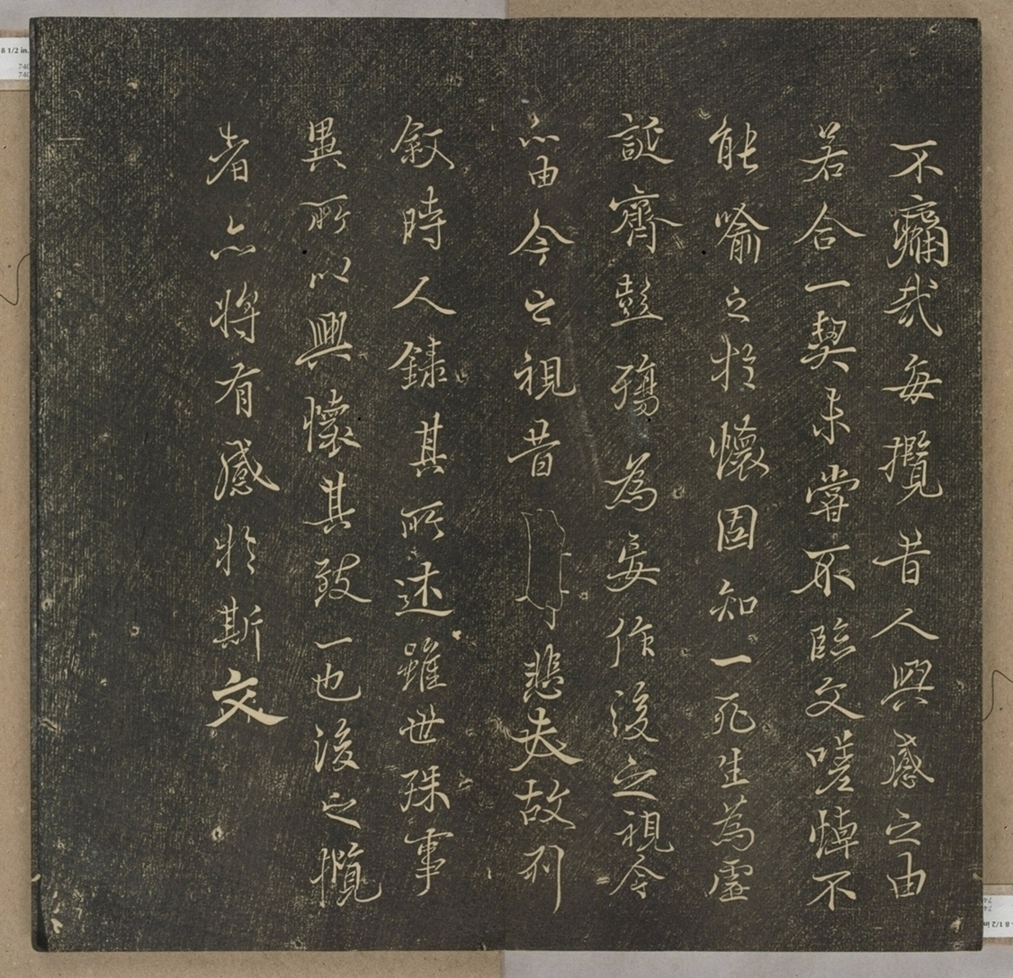 不痛哉每攬昔人興感之由
若合一契未嘗不臨文嗟悼不
能喻之於懷固知一死生為虛
誕齊彭殤為妄作後之視今
亦由今之視昔悲夫故列
敘時人錄其所述雖世殊事
異所以興懷其致一也後之攬
者亦將有感於斯文
8 1/2 in.
8 1/2 in